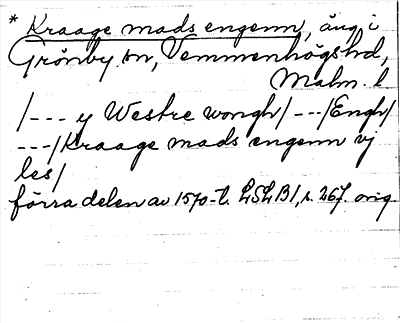 * Kraage mads engenn, äng i
Grönby sn, Vemmenhögs hd,
Malm. l
/--- y Westre wongh/---/Engh/
---/Kraage mads engenn vj
les/
förra delen av 1570-t. LSLB1, s. 267. orig.